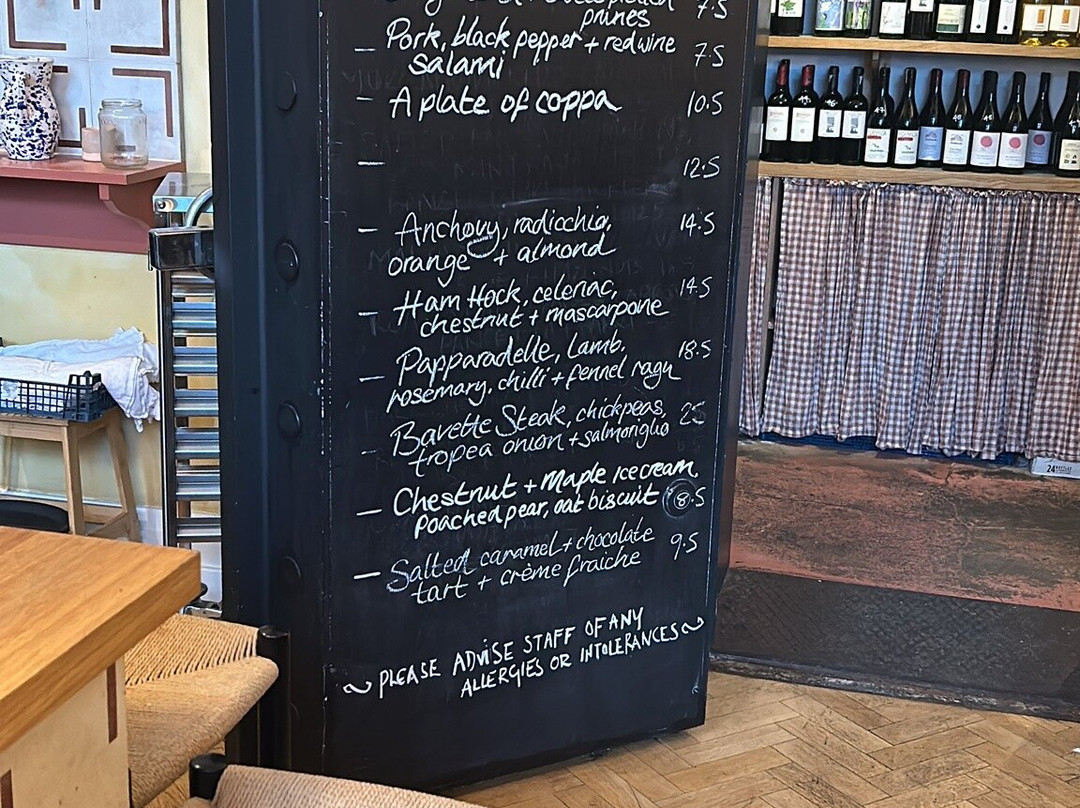 prunes 7.5
— Pork, black pepper + red wine
salami 7.5
— A plate of coppa 10.5
— 12.5
— Anchovy, radicchio, 14.5
orange + almond
— Ham Hock, celeriac, 14.5
chestnut + mascarpone
— Papparadelle, Lamb, 18.5
rosemary, chilli + fennel ragu
- Bavette Steak, chickpeas, 25
tropea onion + salmoriglio
— Chestnut + Maple ice cream,
poached pear, oat biscuit 8.5
— Salted caramel + chocolate 9.5
tart + crème fraiche
~ PLEASE ADVISE STAFF OF ANY
ALLERGIES OR INTOLERANCES ~
24